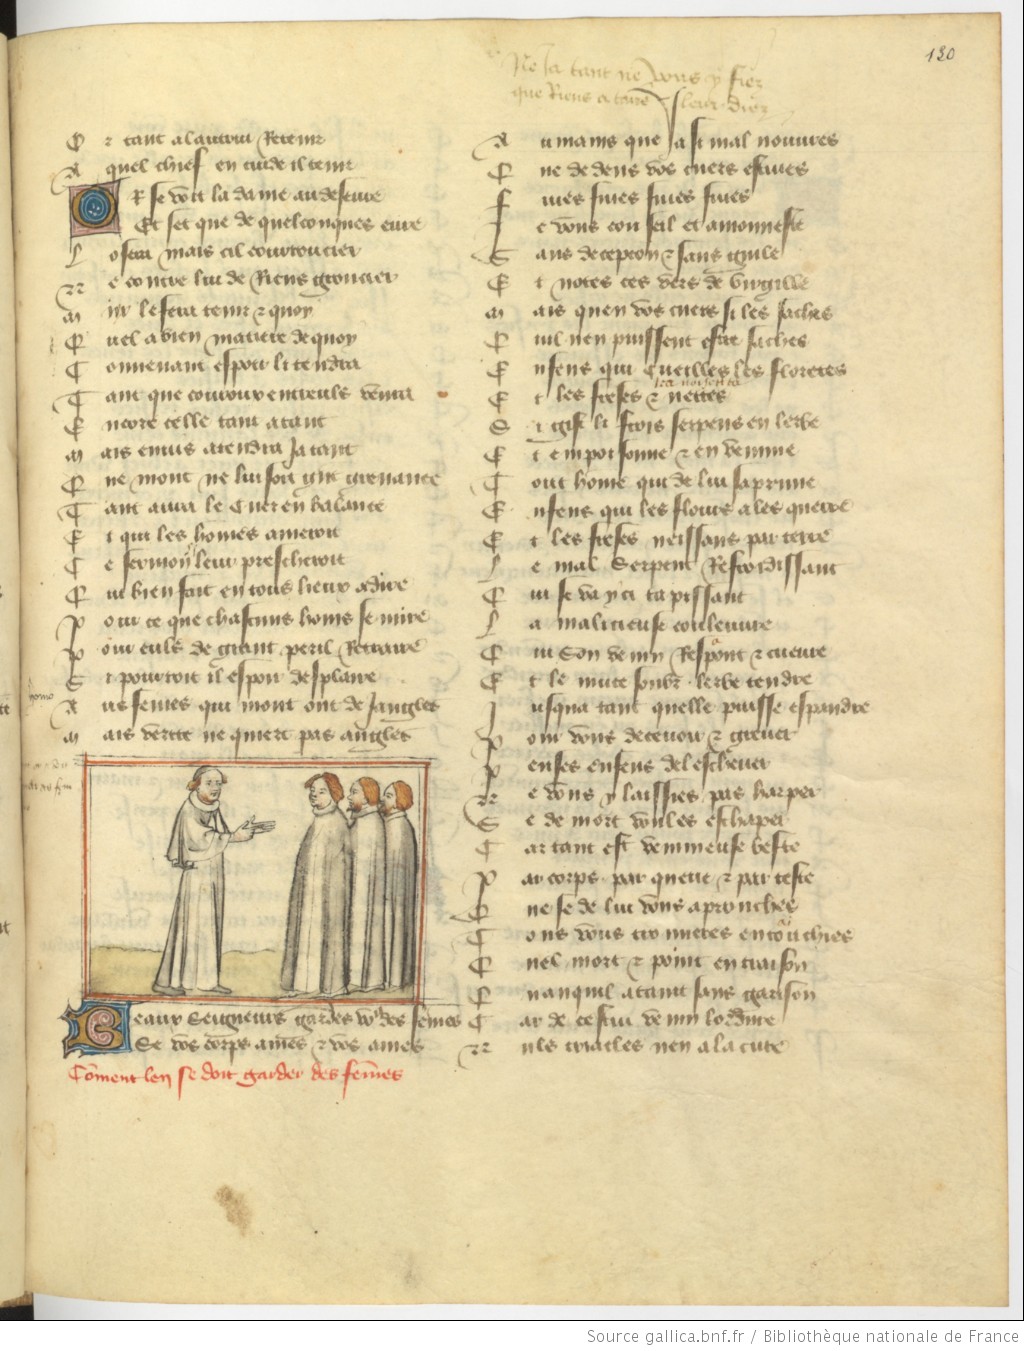 130
Ne ja tant ne vous y fiez
que Riens a tairé leur diez
E t tant a lautrui Retenir
A quel chief en cuide il tenir
O r se voit la dame au deseure
Et set que de quelconques eure
L osera mais cil courroucier
N e contre lui de Riens groucier
M
Q uel a bien matiere de quoy
C onvenant espoir li tendra
T ant que courroux entreuls vendra
E ncore celle tant atant
M ais envis atendra ja tant
Q ne mont ne lui soit
T ant aura le cuer en balance
E t qui les homes ameroit
C e sermon leur prescheroit
Q ui bien fait en tous lieux a dire
P our ce que chascuns homs se mire
P our euls de grant peril Retraire
S i pourroit il espoir desplaire
A us femes qui mont ont de jangles
M ais verité ne quiert pas angles
B eaux Seigneurs gardes vous des femes
Se vos corps ames et vos ames
Coment len se doit garder des femes
A u mains que ja si mal nouvres
Q ne de dens vos cuers
F uiés fuiés fuiés fuiés
J e vous conseil et amonneste
S ans decepcion et sans guile
E t notes ces vers de Virgille
M ais quen vos cuers si les saches
Q uil nen puissent estre saches
E nfens qui cueilles les floretes
E t les freses et nettes
C i gist li frois serpens en lerbe
E t empoisonne et envenime
T out home qui de lui saprime
E nfens qui les flours ales querre
E t les freses naissans par terre
L e mal Serpent Refroidissant
Q ui se va yci tapissant
L a malicieuse couleuvre
Q ui son venin Respont et cueuvre
E t le muce soubz lerbe tendre
J usqua tant quelle puisse espandre
P our vous decevoir et grever
P enses enfens de leschever
N e vous y laissies pas harper
S e de mort voules eschaper
C ar tant est venimeuse beste
P ar corps par queue et par teste
Q ne se de lui vous aprouches
T ous vous trouveres entouchies
Q
Q nanquil ataint sans garison
C ar de cestui venin lordure
N uls triacles nen a la cure
Source gallica.bnf.fr / Bibliothèque nationale de France